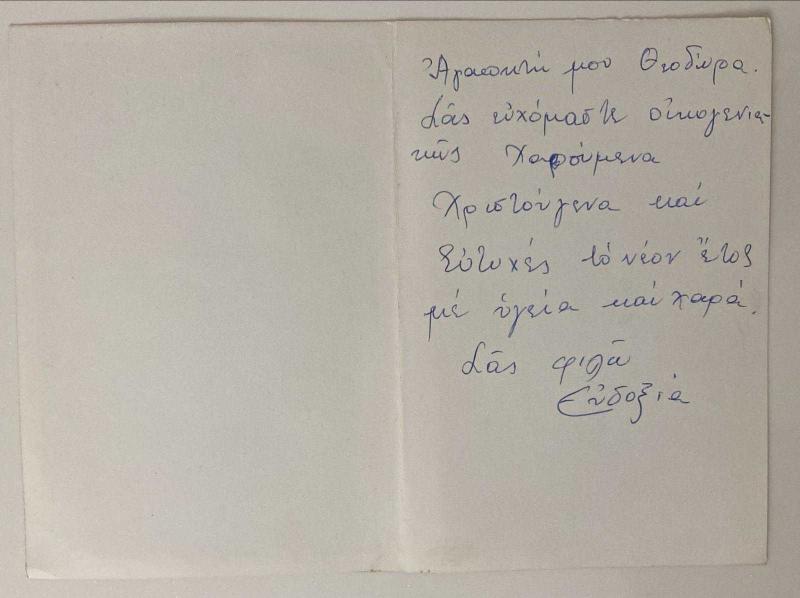 Ἀγαπητή μου Θεοδώρα.
Σᾶς εὐχόμαστε οἰκογενια-
κῶς Χαρούμενα
Χριστούγενα καί
Εὐτυχές τό νέον ἔτος
μέ ὑγεία καί χαρά.
Σᾶς φιλῶ
Εὐδοξία